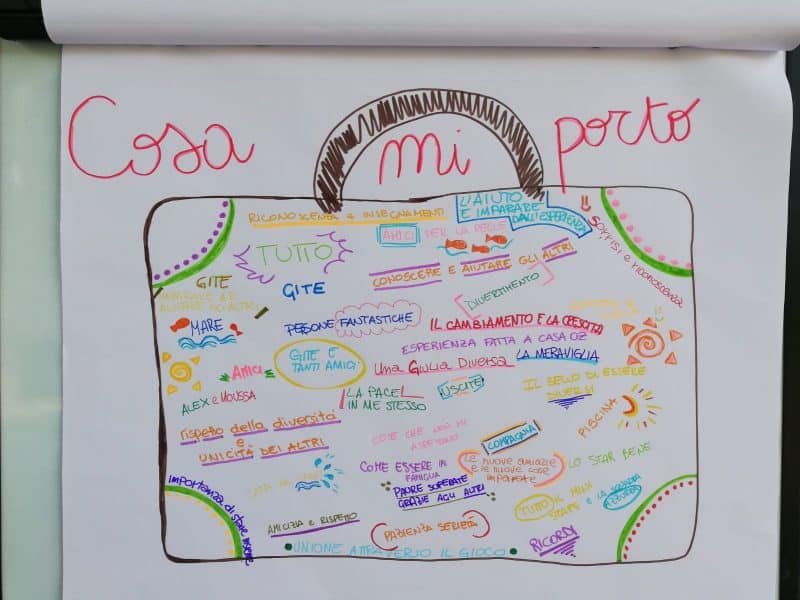 Cosa mi porto
RICONOSCENZA + INSEGNAMENTI
L'AIUTO
E IMPARARE
DALL'ESPERIENZA
SORRISI e riconoscenza
AMICI PER LA PELLE
TUTTO
CONOSCERE E AIUTARE GLI ALTRI
GITE
GITE
DIVERTIMENTO
MARE
PERSONE FANTASTICHE
IL CAMBIAMENTO E LA CRESCITA
ESPERIENZA FATTA A CASA OZ
GITE E
TANTI AMICI
una Giulia Diversa
LA MERAVIGLIA
AMICI
USCITE
IL BELLO DI ESSERE
DIVERSI
ALEX e MOUSSA
LA PACE
IN ME STESSO
PISCINA
rispetto della diversità
e
UNICITÀ DEI ALTRI
COSE CHE NON MI
ASPETTAVO
COMPAGNIA
COME ESSERE IN
FAMIGLIA
le nuove amicizie
e le nuove cose
imparate
LO STAR BENE
PAURE SUPERATE
GRAZIE AGLI ALTRI
importanza di stare insieme
TUTTO IL MINI
STAFF e LA SQUADRA
AZZURRA
AMICIZIA e RISPETTO
PAZIENZA SERIETÀ
RICORDI
UNIONE ATTRAVERSO IL GIOCO